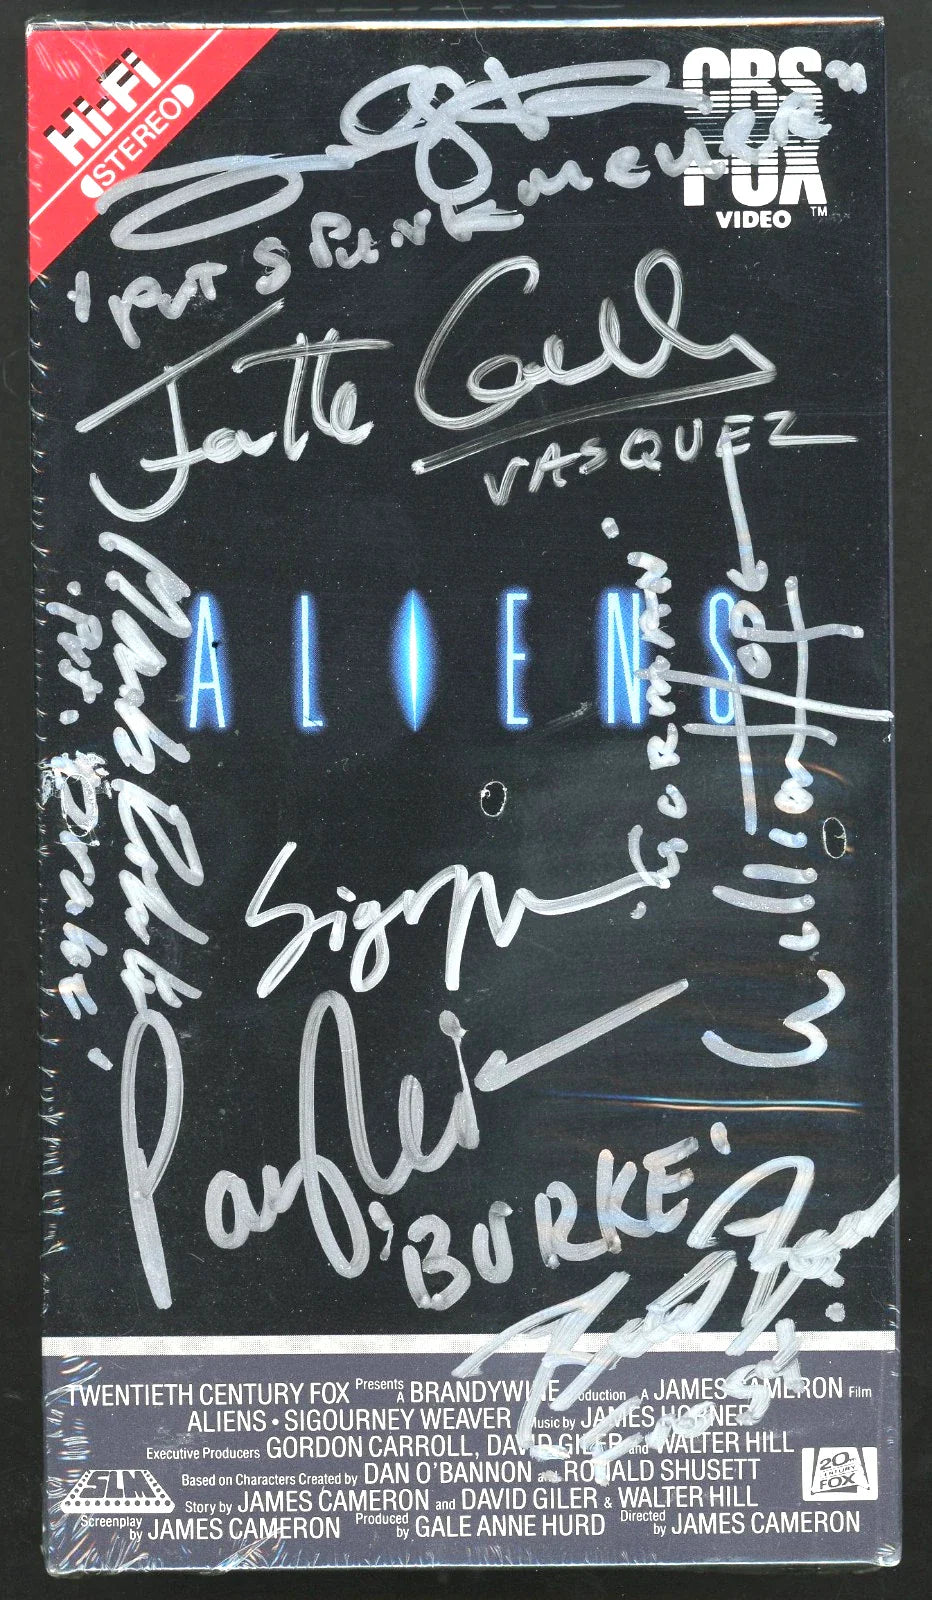 Hi-Fi
STEREO
CBS
FOX
VIDEO ™
VASQUEZ
'GORMAN'
ALIENS
William Hope
Sigourney
Paul Reiser
'BURKE'
TWENTIETH CENTURY FOX Presents A BRANDYWINE Production A JAMES CAMERON Film
ALIENS • SIGOURNEY WEAVER Music by JAMES HORNER
Executive Producers GORDON CARROLL, DAVID GILER and WALTER HILL
Based on Characters Created by DAN O'BANNON and RONALD SHUSETT
Story by JAMES CAMERON and DAVID GILER & WALTER HILL
Screenplay by JAMES CAMERON Produced by GALE ANNE HURD Directed by JAMES CAMERON
SLM
20th
CENTURY
FOX